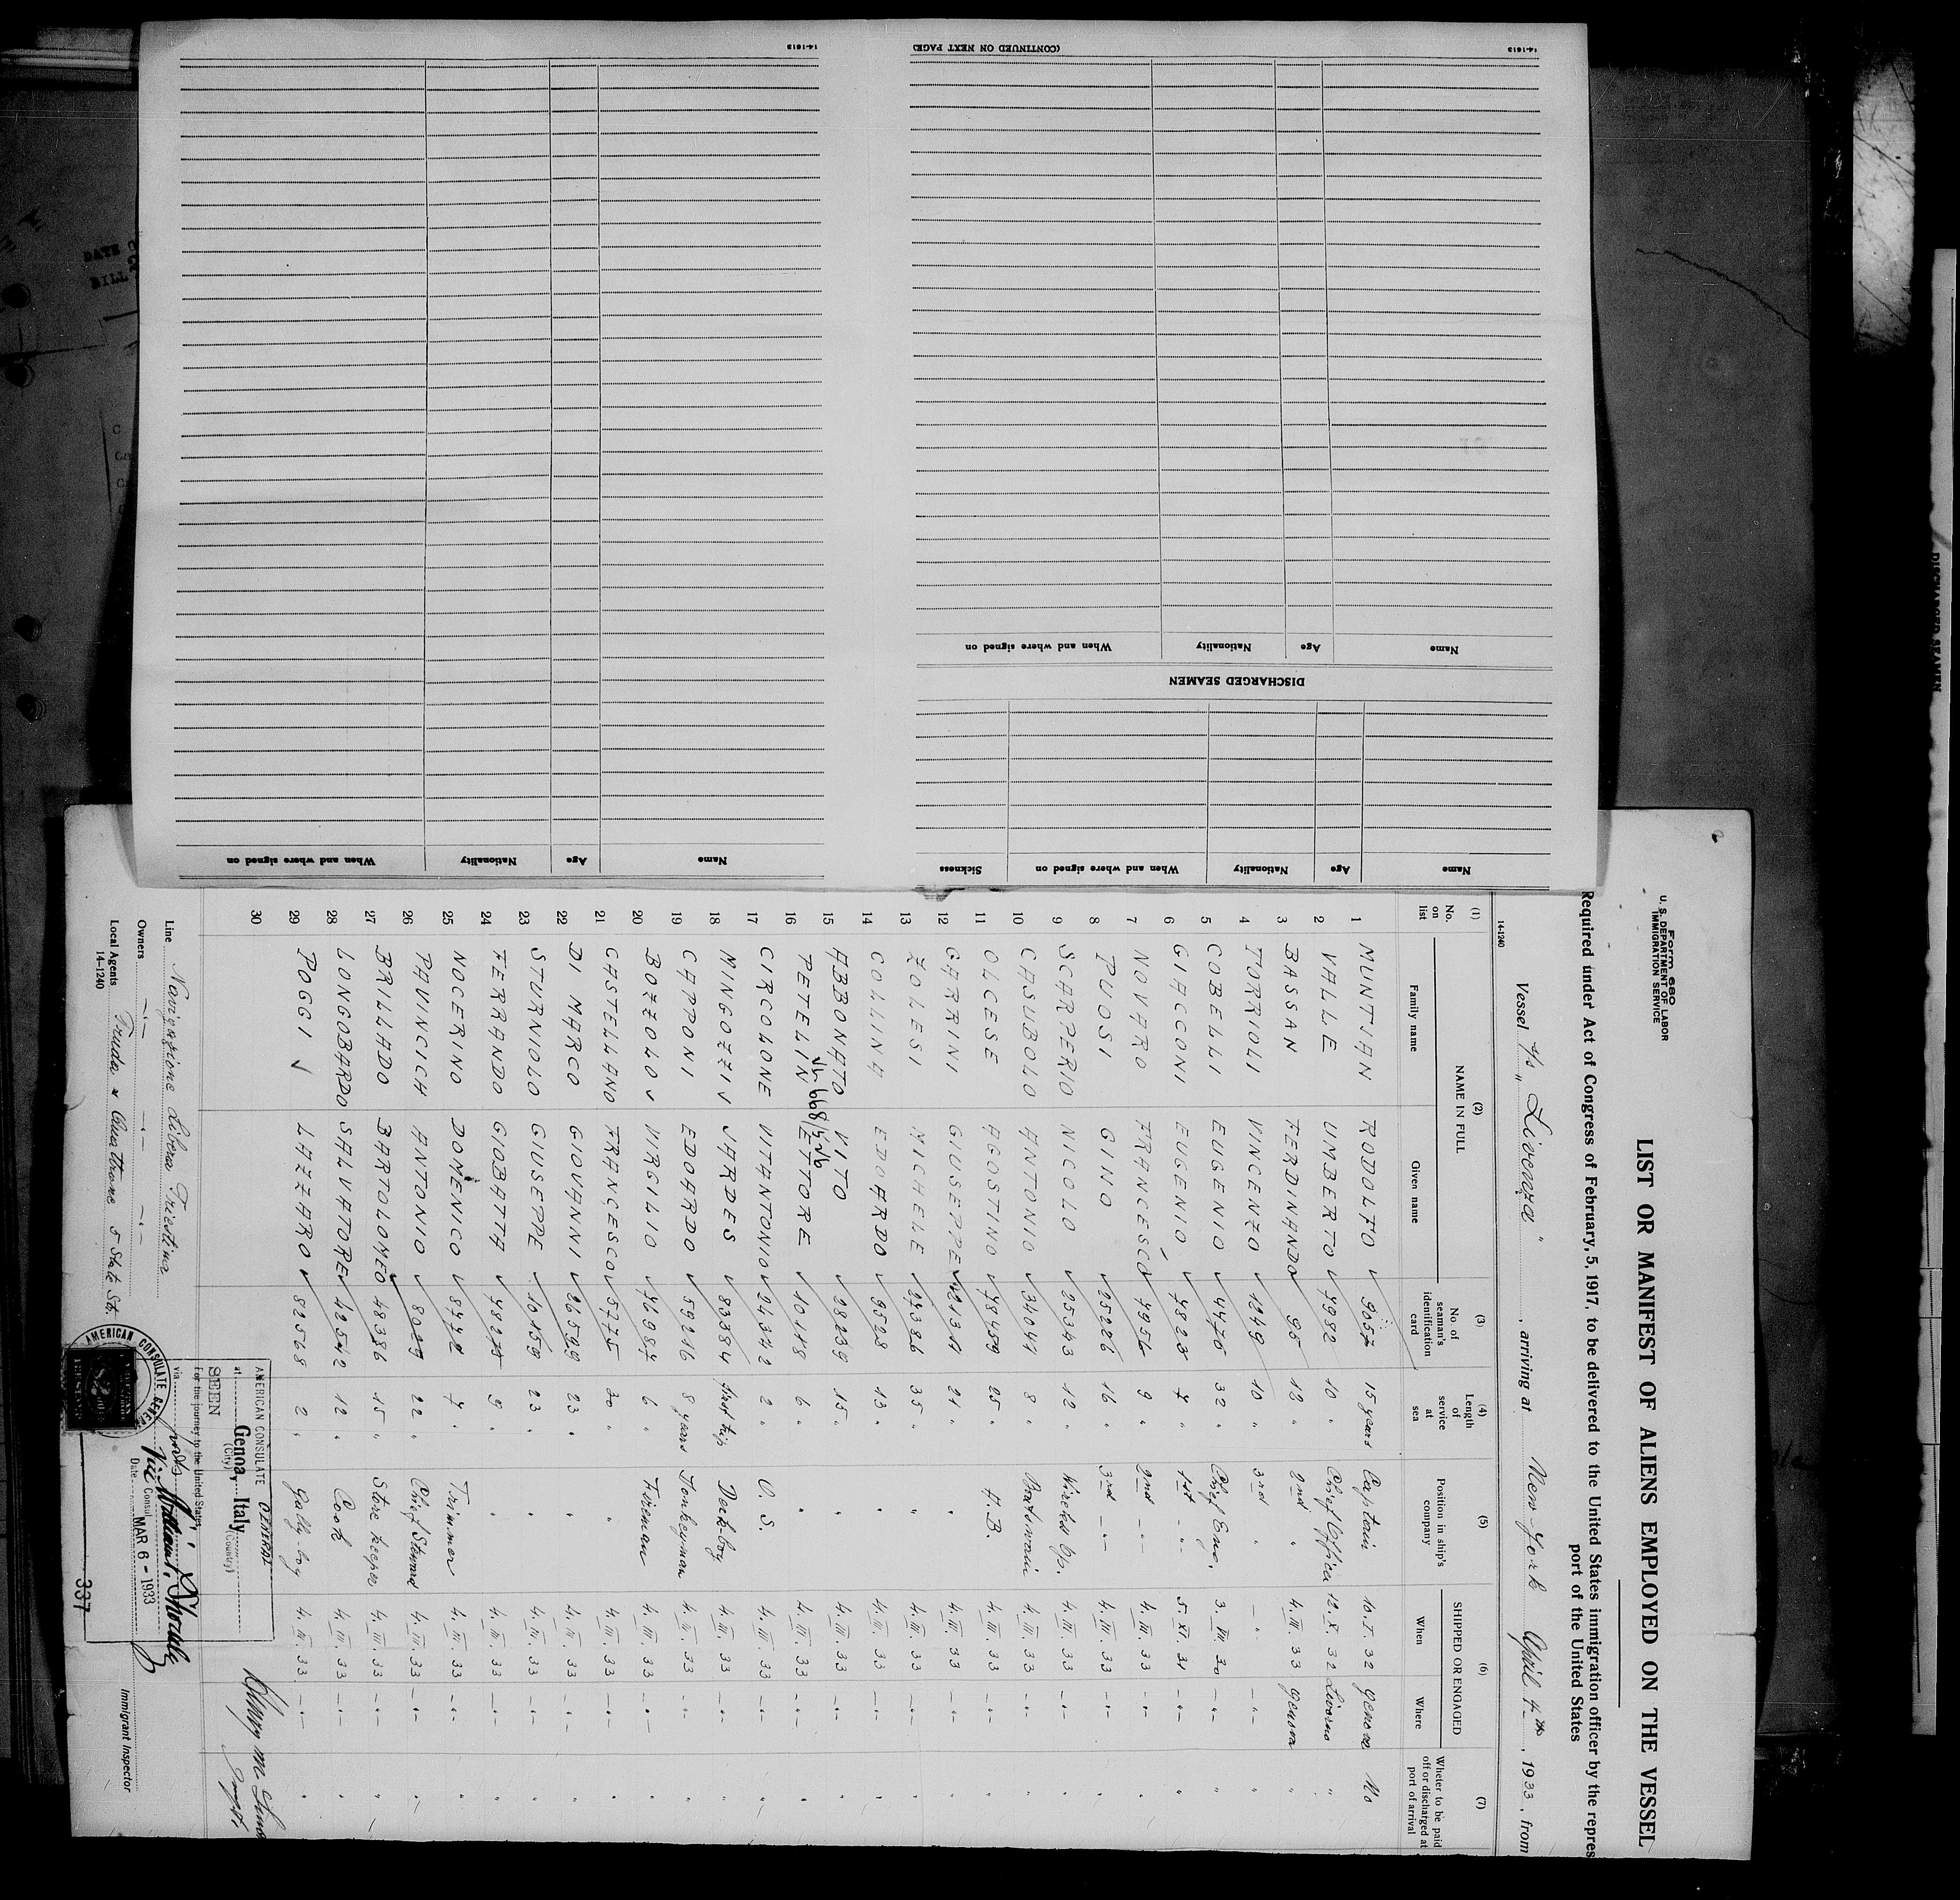 14-1613
(CONTINUED ON NEXT PAGE)
14-1613
Name Age Nationality When and where signed on
DISCHARGED SEAMEN
Name Age Nationality When and where signed on Sickness
Name Age Nationality When and where signed on
DATE
BILL
DISCHARGED SEAMEN
Form 680
U. S. DEPARTMENT OF LABOR
IMMIGRATION SERVICE
LIST OR MANIFEST OF ALIENS EMPLOYED ON THE VESSEL
Required under Act of Congress of February, 5, 1917, to be delivered to the United States immigration officer by the repres
port of the United States
Vessel "Livenza", arriving at New-York April 4th, 1933, from
14-1240
(1) (2) (3) (4) (5) (6) (7)
No. on list NAME IN FULL Family name Given name No. of seaman's identification card Length of service at sea Position in ship's company SHIPPED OR ENGAGED When Where Wheter to be paid off or discharged at port of arrival
1 MUNTJAN RODOLFO 9057 15 years Captain 10.I.32 Genova No
2 VALLE UMBERTO 4982 10 " Chief Officer 12.X.32 Livorno "
3 BASSAN FERDINANDO 95 12 " 2nd " 4.III.33 Genova "
4 TORRIOLI VINCENZO 1249 10 " 3rd " -"- -"- "
5 COBELLI EUGENIO 4475 32 " Chief Eng. 3.VII.30 -"- "
6 GIACCONI EUGENIO 4823 4 " 1st -"- 5.XI.31 -"- "
7 NOVARO FRANCESCO 4956 9 " 2nd -"- 4.III.33 -"- "
8 PUOSI GINO 25226 16 " 3rd -"- 4.III.33 -"- "
9 SCARPERIO NICOLO 25343 12 " Wireless Op. 4.III.33 -"- "
10 CASUBOLO ANTONIO 34044 8 " Boatswain 4.III.33 -"- "
11 OLCESE AGOSTINO 48459 25 " A.B. 4.III.33 -"- "
12 GARRINI GIUSEPPE 21314 21 " " 4.III.33 -"- "
13 ZOLESI MICHELE 27336 35 " " 4.III.33 -"- "
14 COLLINA EDOARDO 9528 13 " " 4.III.33 -"- "
15 ABBONATO VITO 28239 15 " " 4.III.33 -"- "
16 PETELIN ETTORE 10118 6 " " 4.III.33 -"- "
17 CIRCOLONE VITANTONIO 24342 2 " O.S. 4.III.33 -"- "
18 MINGOZZI JARDES 83384 first trip Deck-boy 4.III.33 -"- "
19 CAPPONI EDOARDO 59216 8 years Donkeyman 4.III.33 -"- "
20 BOZZOLO VIRGILIO 46984 6 " Fireman 4.III.33 -"- "
21 CASTELLANO FRANCESCO 5775 30 " " 4.III.33 -"- "
22 DI MARCO GIOVANNI 26599 23 " " 4.III.33 -"- "
23 STURNIOLO GIUSEPPE 10159 23 " " 4.III.33 -"- "
24 FERRANDO GIOBATTA 9 " " 4.III.33 -"- "
25 NOCERINO DOMENICO 4 " Trimmer 4.III.33 -"- "
26 PAVINCICH ANTONIO 22 " Chief Steward 4.III.33 -"- "
27 BRILLADO BARTOLOMEO 48386 15 " Store keeper 4.III.33 -"- "
28 LONGOBARDO SALVATORE 42542 12 " Cook 4.III.33 -"- "
29 POGGI LAZZARO 82568 2 " Gally-boy 4.III.33 -"- "
30
Line Navigazione Libera Triestina
Owners -"- -"- -"-
Local Agents Truda & 5 State St.
14-1240
Immigrant Inspector
AMERICAN CONSULATE GENERAL
at Genoa, Italy
(City) (Country)
SEEN
For the journey to the United States
via
Vice Consul
Date MAR 6 - 1933
AMERICAN CONSULATE GENERAL
337